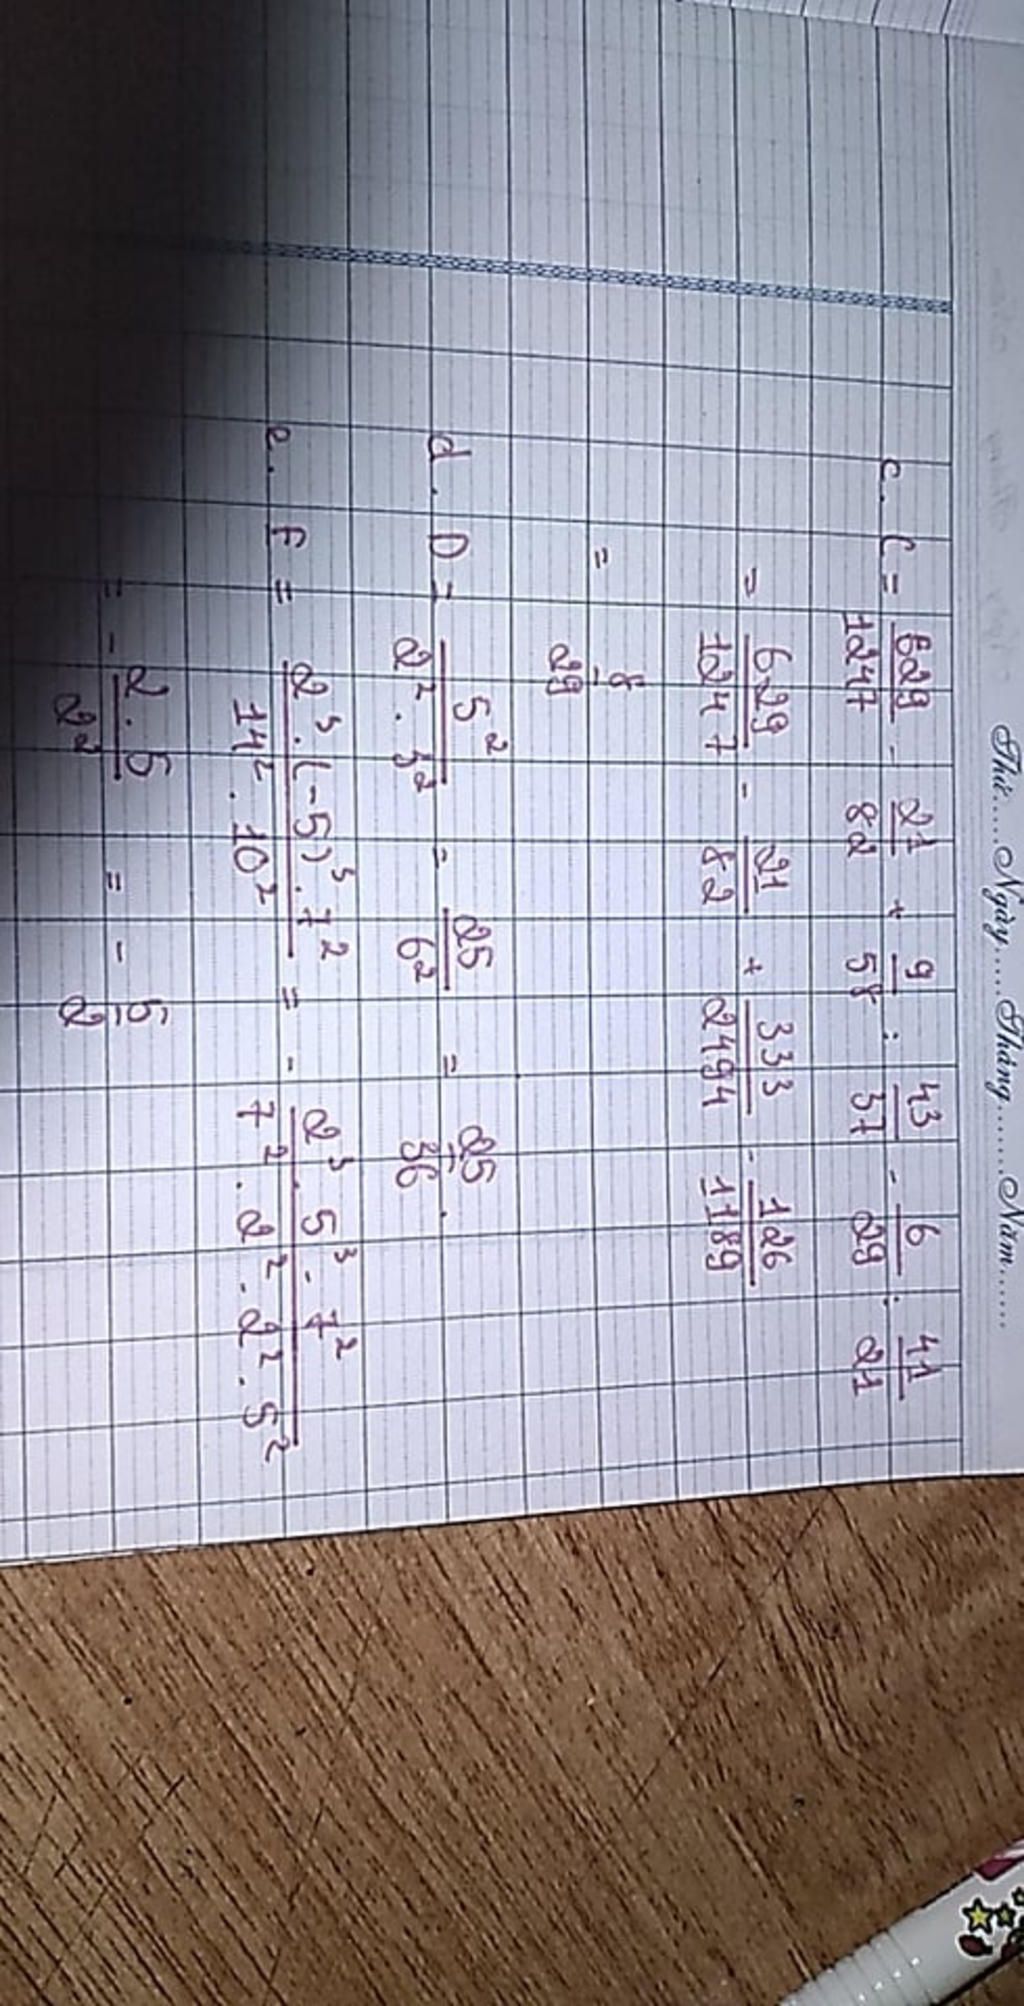 Thứ.....Ngày.....Tháng.......Năm......
c. C = \frac{629}{1247} - \frac{21}{82} + \frac{9}{58} : \frac{43}{37} - \frac{6}{29} : \frac{41}{21}
= \frac{629}{1247} - \frac{21}{82} + \frac{333}{2494} - \frac{126}{1189}
= \frac{8}{29}
d. D = \frac{5^2}{2^2 . 3^2} = \frac{25}{6^2} = \frac{25}{36} .
e. F = \frac{2^3 . (-5)^3 . 7^2}{14^2 . 10^2} = - \frac{2^3 . 5^3 . 7^2}{7^2 . 2^2 . 2^2 . 5^2}
= - \frac{2 . 5}{2^2} = - \frac{5}{2}